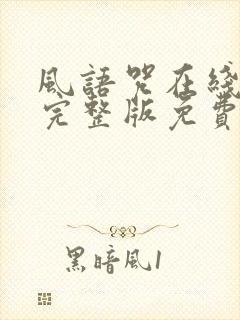 風語咒在綫
完整版免費
黑暗風1